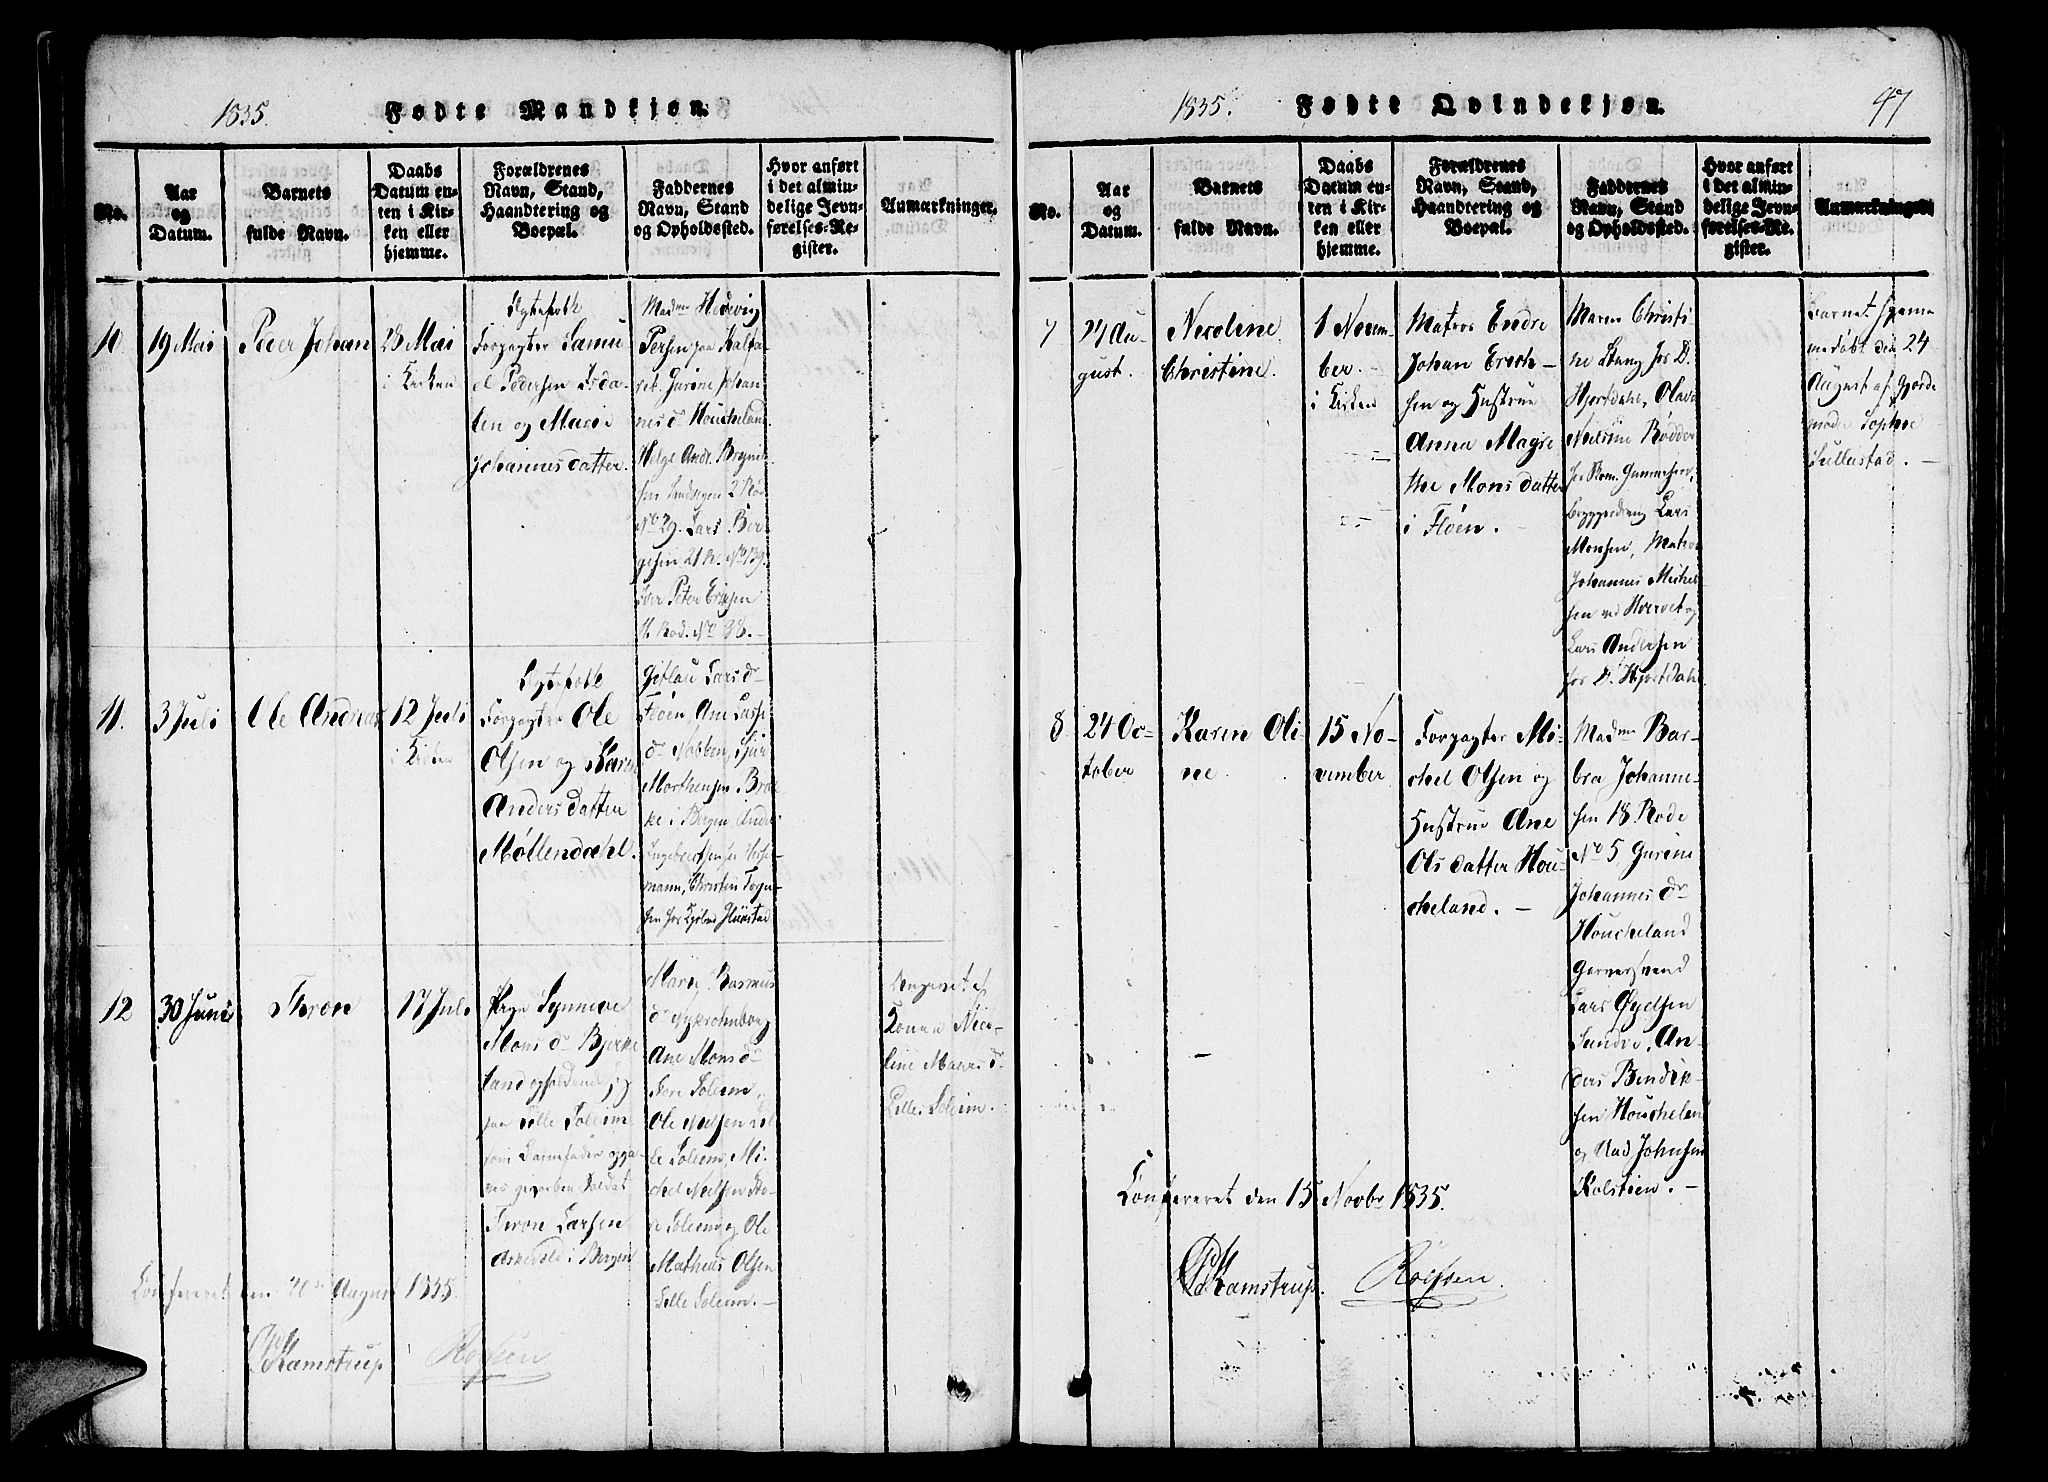 1835.
Fødte Mandkjøn.
No.
Aar
og
Datum.
Barnets
fulde Navn.
Daabs
Datum en-
ten i Kir-
ken eller
hjemme.
Forældrenes
Navn, Stand,
Haandtering og
Boepæl.
Faddernes
Navn, Stand
og Opholdssted.
Hvor anført
i det almin-
delige Jevn-
førelses-Re-
gister.
Anmærkninger.
10.
19 Mai
Peder Johan
28 Mai
i Kirken
Ægtefolk
Forpagter Samu-
el Pedersen Isda-
len og Mari
Johannesdatter.
Madme Hedevig
Persen paa Kalfa-
ret. Gurine Johan-
nes dr Houcheland
Helge Andr. Brynil-
sen
No 29. Lars Bør-
gesen 21 R. No 139.
Iver Peter Ericksen
11. Rod. No 38. –
11.
3 Juli
Ole Andreas
12 Juli
i Kirken
Ægtefolk
Forpagter Ole
Olsen og Karen
Andersdatter
Møllendahl.
Lars dr
Fløen, Ane Lasse
dr Nobben,
Morthensen
i Bergen,
Ingebrethsen
mann, Christen
sen hos
12
30 Juni
Thron
17 Juli
Pige Synneve
Mons dr Bjerke
land opholdende sig
paa Lille Soleim
som Barnefader opga-
ves geworben Soldat
Thron Larsen
Askevold i Bergen
Maria Rasmus
dr Nykrohnborg
Ane Mons dr
Store Soleim,
Ole Nilsen Lil-
le Soleim, Mi-
chel Nilsen Sto-
re Soleim og Ole
Mathias Olsen
Lille Soleim. –
Angivet af
Konen Nico-
line
Lille Soleim.
Confereret den 20de August 1835.
Kamstrup
Roepsen
1835.
Fødte Qvindekjøn.
97
No.
Aar
og
Datum.
Barnets
fulde Navn.
Daabs
Datum en-
ten i Kir-
ken eller
hjemme.
Forældrenes
Navn, Stand,
Haandtering og
Boepæl.
Faddernes
Navn, Stand
og Opholdssted.
Hvor anført
i det almin-
delige Jevn-
førelses-Re-
gister.
Anmærkninger.
7
24 Au-
gust.
Nicoline
Christine.
1 Novem-
ber. –
i Kirken
Matros Endre
Johan Erich-
sen og Hustrue
Anna Magre
the Mons datter
i Fløen. –
Maren Christi
ne Stang hos D.
Hjortdahl, Olave
Neilsine Bødder
hos Kom. Gunnersen,
Lars
Monsen, Matros
Johannes Michel-
sen ved Hvervet og
Lars Andersen
hos D. Hjortdahl
Barnet hjemme-
medøbt den 24
August af Gjorde
moder Sophie
Sullestad. –
8
24 Oc-
tober
Karen Oli-
ne
15 No-
vember
Forpagter Mi-
chel Olsen og
Hustrue Ane
Ols datter Hou-
cheland. –
Madme Bar-
bra Johanne-
sen 18 Rode
No 5 Gurine
Johannes dr
Houcheland
Garversvend
Lars
Sandvi, An-
ders Bendix-
sen Houcheland
og Aad Johnsen
Kolstien. –
Confereret den 15 Novbr 1835.
Kamstrup.
Roepsen.